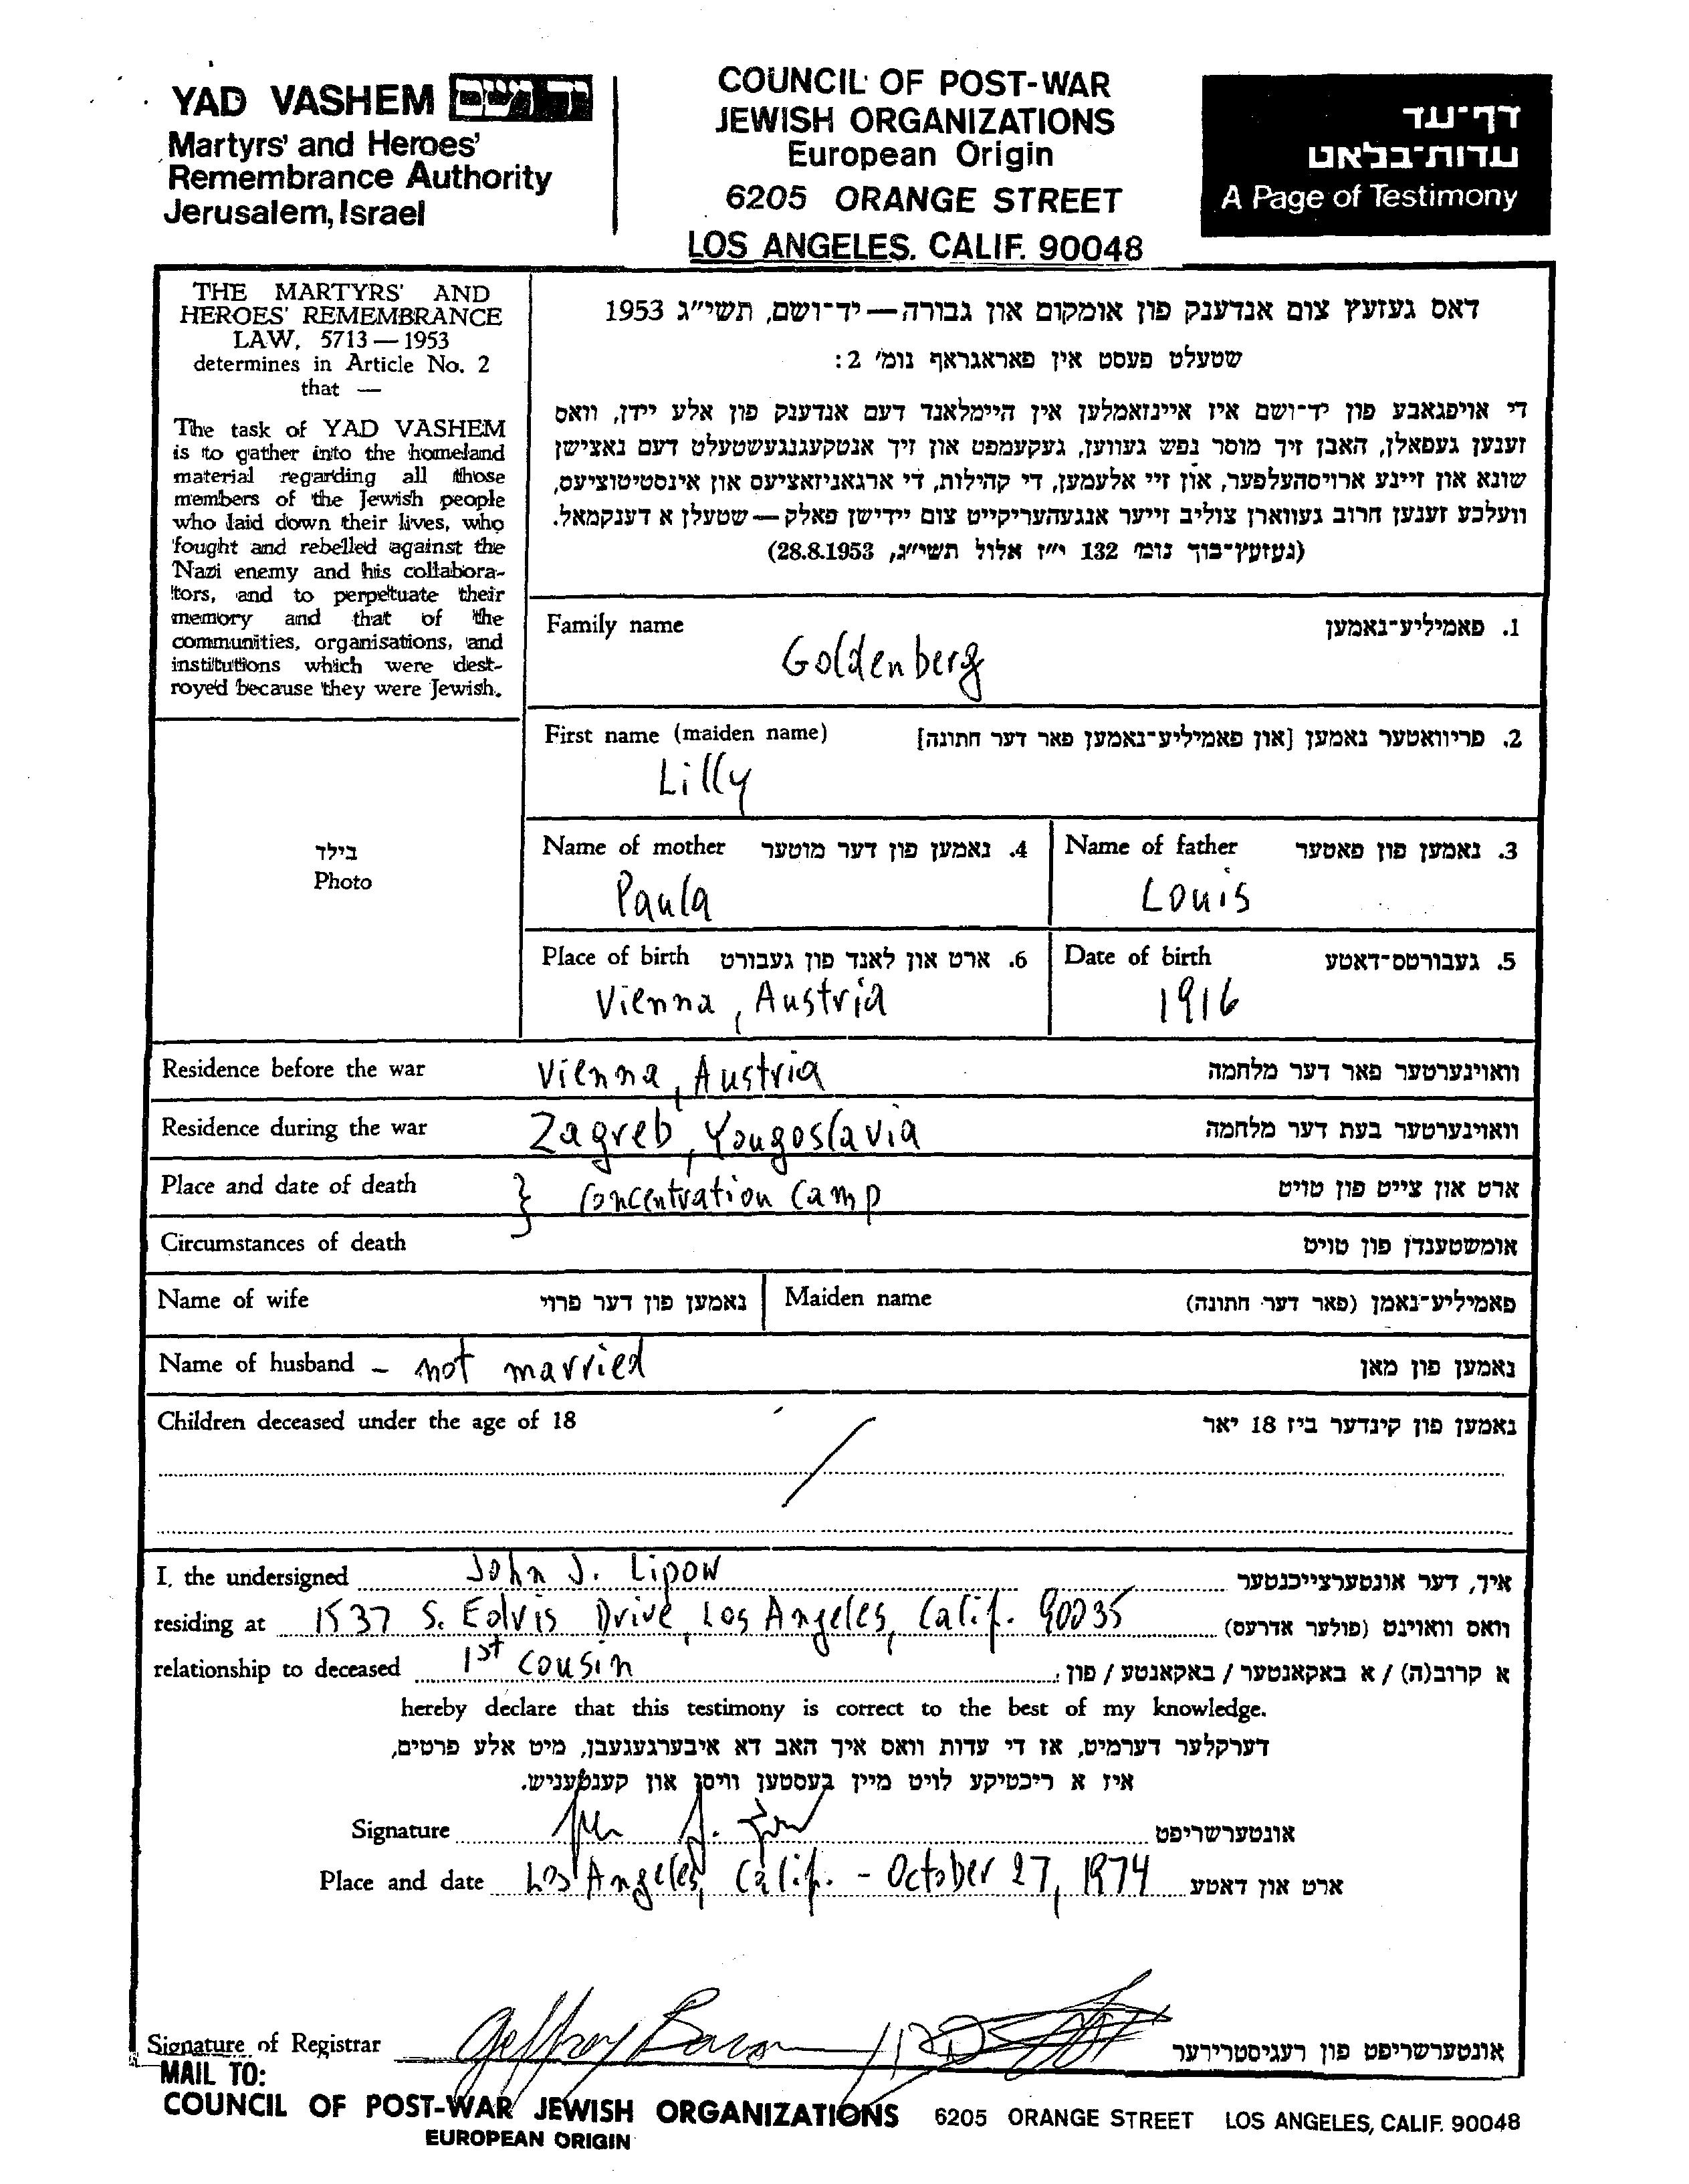 YAD VASHEM יד ושם
Martyrs' and Heroes'
Remembrance Authority
Jerusalem, Israel
COUNCIL OF POST-WAR
JEWISH ORGANIZATIONS
European Origin
6205 ORANGE STREET
LOS ANGELES. CALIF. 90048
דף־עד
עדות־בלאט
A Page of Testimony
THE MARTYRS' AND
HEROES' REMEMBRANCE
LAW, 5713—1953
determines in Article No. 2
that —
The task of YAD VASHEM
is to gather into the homeland
material regarding all those
members of the Jewish people
who laid down their lives, who
fought and rebelled against the
Nazi enemy and his collabora-
tors, and to perpetuate their
memory and that of the
communities, organisations, and
institutions which were dest-
royed because they were Jewish.
דאס געזעץ צום אנדענק פון אומקום און גבורה — יד־ושם, תשי״ג 1953
שטעלט פעסט אין פאראגראף נומ׳ 2:
די אויפגאבע פון יד־ושם איז איינזאמלען אין היימלאנד דעם אנדענק פון אלע יידן, וואס
זענען געפאלן, האבן זיך מוסר נפש געווען, געקעמפט און זיך אנטקעגנגעשטעלט דעם נאצישן
שונא און זיינע ארויסהעלפער, און זיי אלעמען, די קהילות, די ארגאניזאציעס און אינסטיטוציעס,
וועלכע זענען חרוב געווארן צוליב זייער אנגעהעריקייט צום יידישן פאלק — שטעלן א דענקמאל.
(געזעץ־בוך נומ׳ 132 י״ז אלול תשי״ג, 28.8.1953)
Family name 1. פאמיליע־נאמען
Goldenberg
First name (maiden name) 2. פריוואטער נאמען [און פאמיליע־נאמען פאר דער חתונה]
Lilly
בילד
Photo
Name of mother 4. נאמען פון דער מוטער
Paula
Name of father 3. נאמען פון פאטער
Louis
Place of birth 6. ארט און לאנד פון געבורט
Vienna, Austria
Date of birth 5. געבורטס־דאטע
1916
Residence before the war Vienna, Austria וואוינערטער פאר דער מלחמה
Residence during the war Zagreb, Yougoslavia וואוינערטער בעת דער מלחמה
Place and date of death } Concentration Camp ארט און צייט פון טויט
Circumstances of death אומשטענדן פון טויט
Name of wife נאמען פון דער פרוי Maiden name פאמיליע־נאמן (פאר דער חתונה)
Name of husband – not married נאמען פון מאן
Children deceased under the age of 18 נאמען פון קינדער ביז 18 יאר
I, the undersigned John J. Lipow איך, דער אונטערצייכנטער
residing at 1537 S. Edris Drive, Los Angeles, Calif. 90035 וואס וואוינט (פולער אדרעס)
relationship to deceased 1st cousin א קרוב(ה) / א באקאנטער / באקאנטע / פון:
hereby declare that this testimony is correct to the best of my knowledge.
דערקלער דערמיט, אז די עדות וואס איך האב דא איבערגעגעבן, מיט אלע פרטים,
איז א ריכטיקע לויט מיין בעסטען וויסן און קענטעניש.
Signature אונטערשריפט
Place and date Los Angeles, Calif. - October 27, 1974 ארט און דאטע
Signature of Registrar אונטערשריפט פון רעגיסטרירער
MAIL TO:
COUNCIL OF POST-WAR JEWISH ORGANIZATIONS 6205 ORANGE STREET LOS ANGELES, CALIF. 90048
EUROPEAN ORIGIN